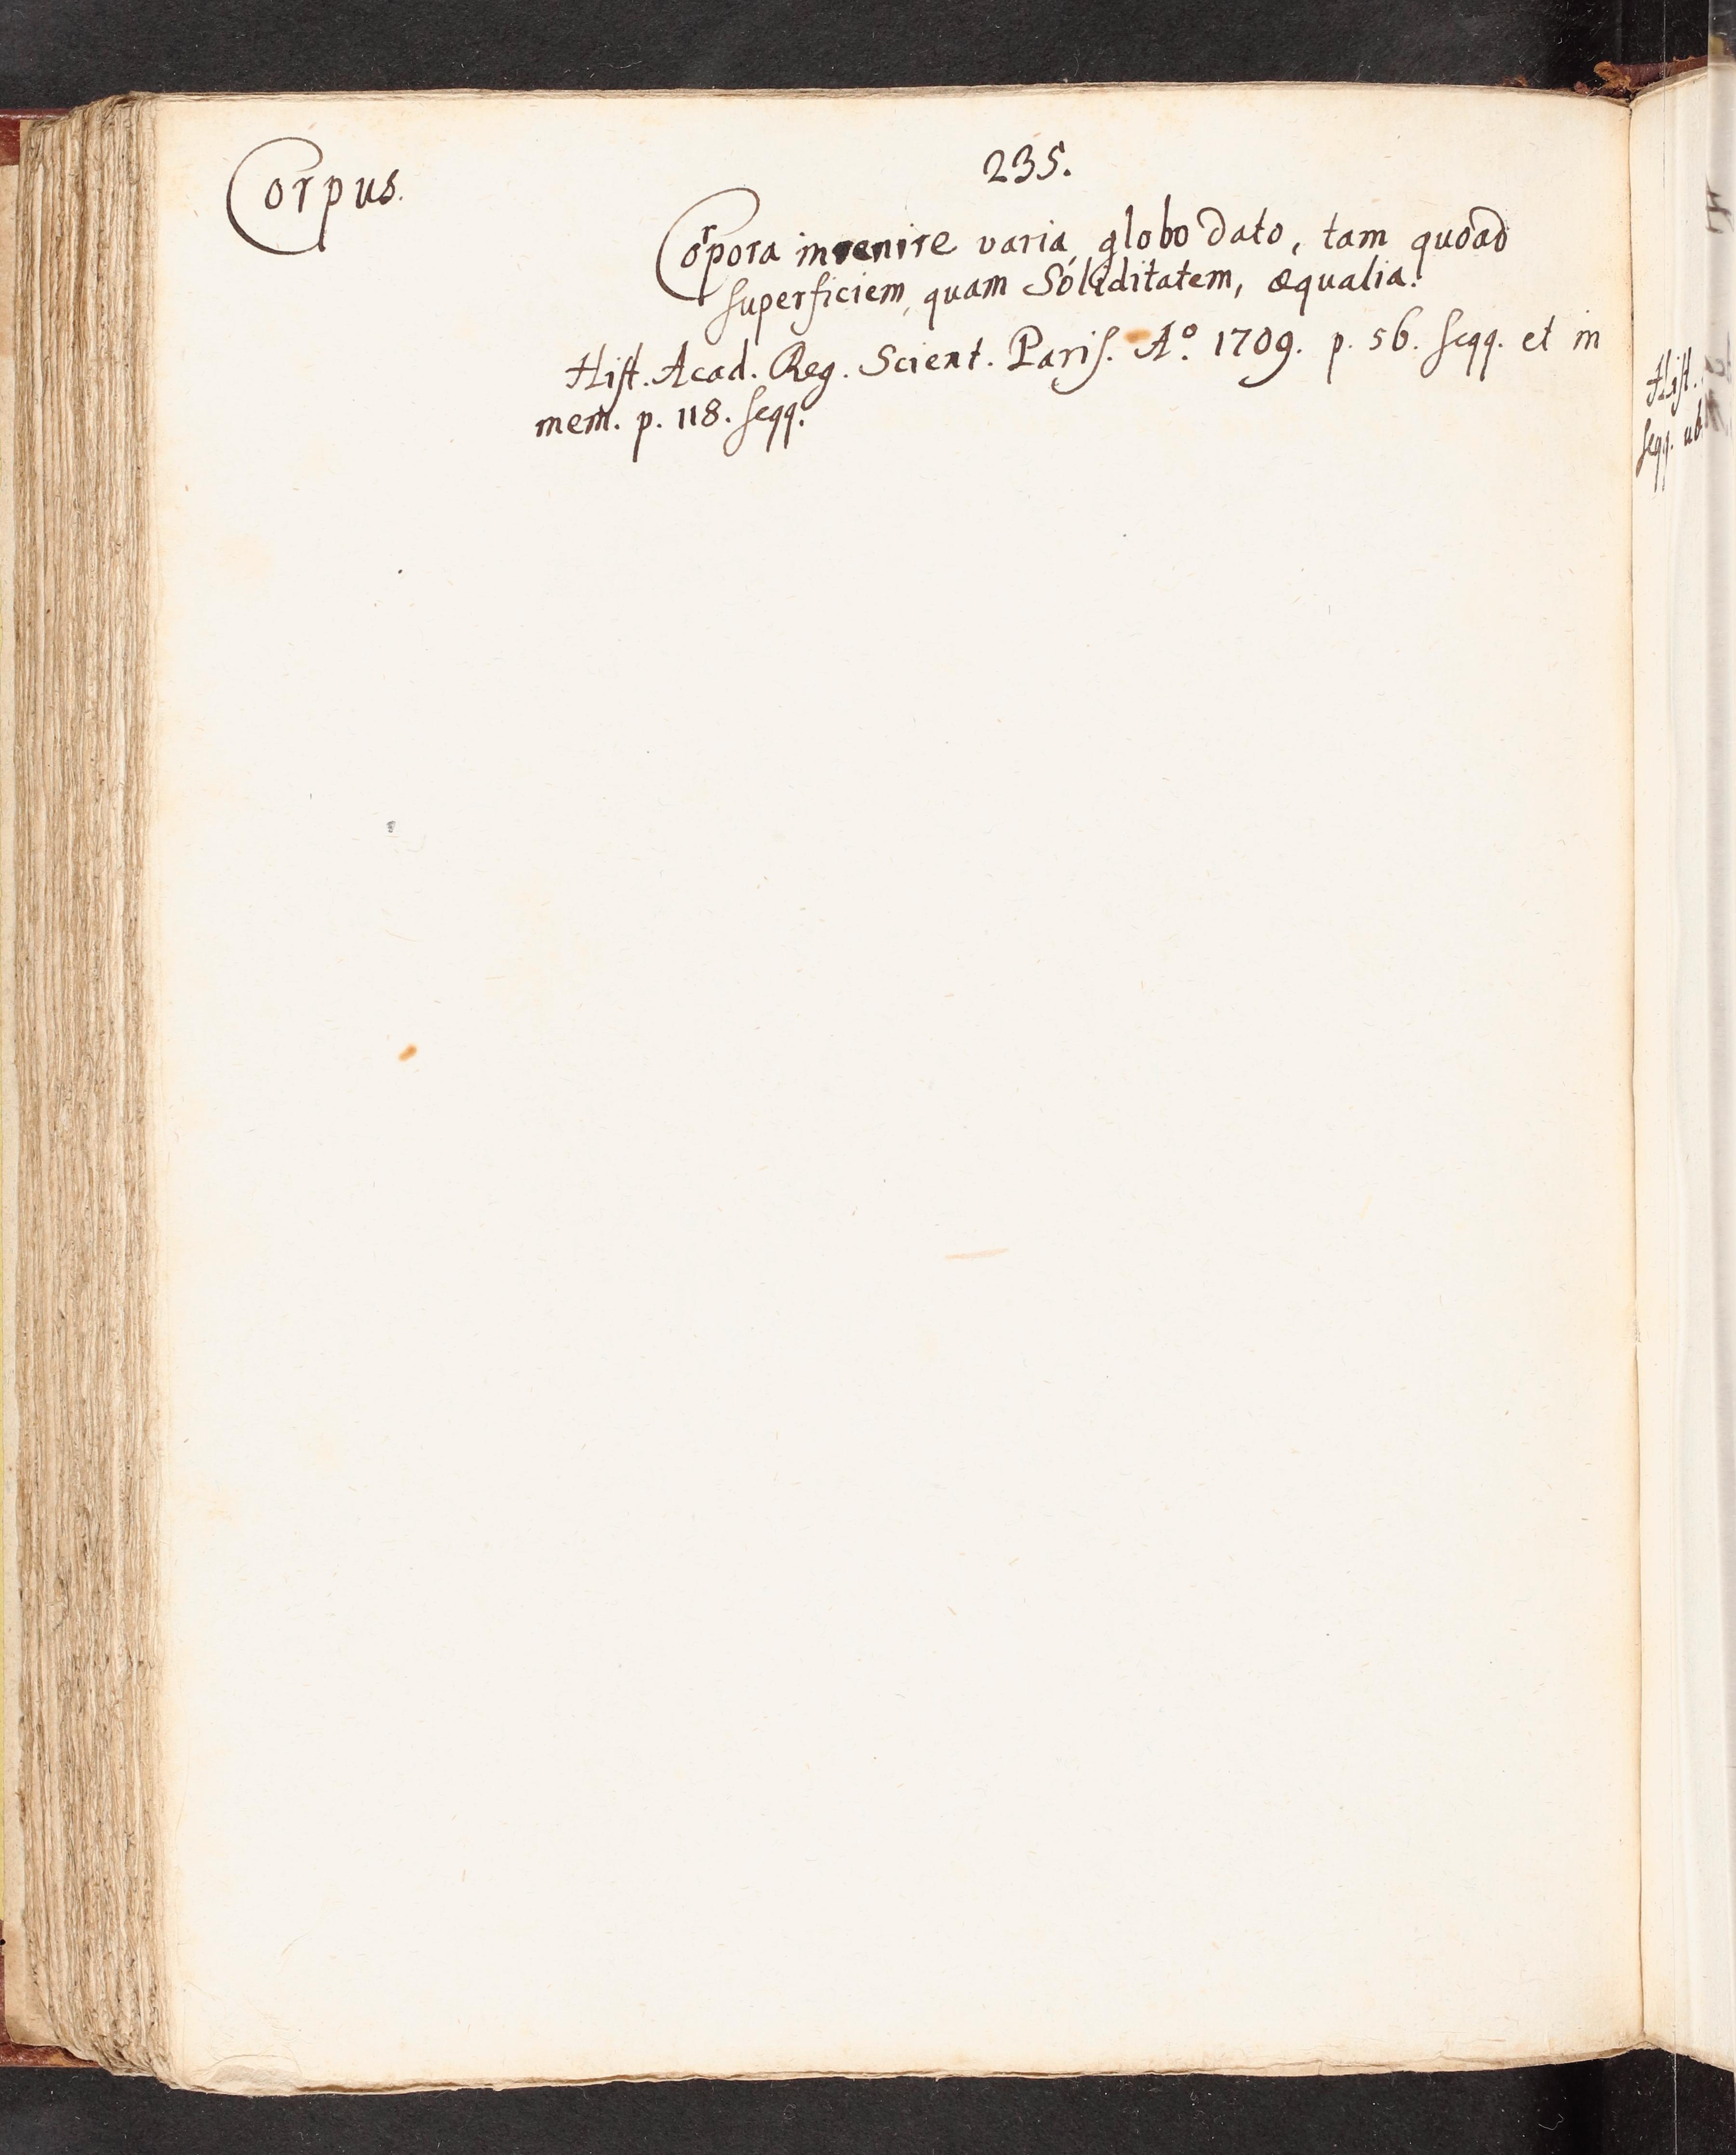 Corpus.
235.
Corpora invenire varia, globo dato, tam quoad
superficiem, quam Soliditatem, æqualia.
Hist. Acad. Reg. Scient. Paris. Aº. 1709. p. 56. seqq. et in
mem. p. 118. seqq.
Hist.
seqq. ub